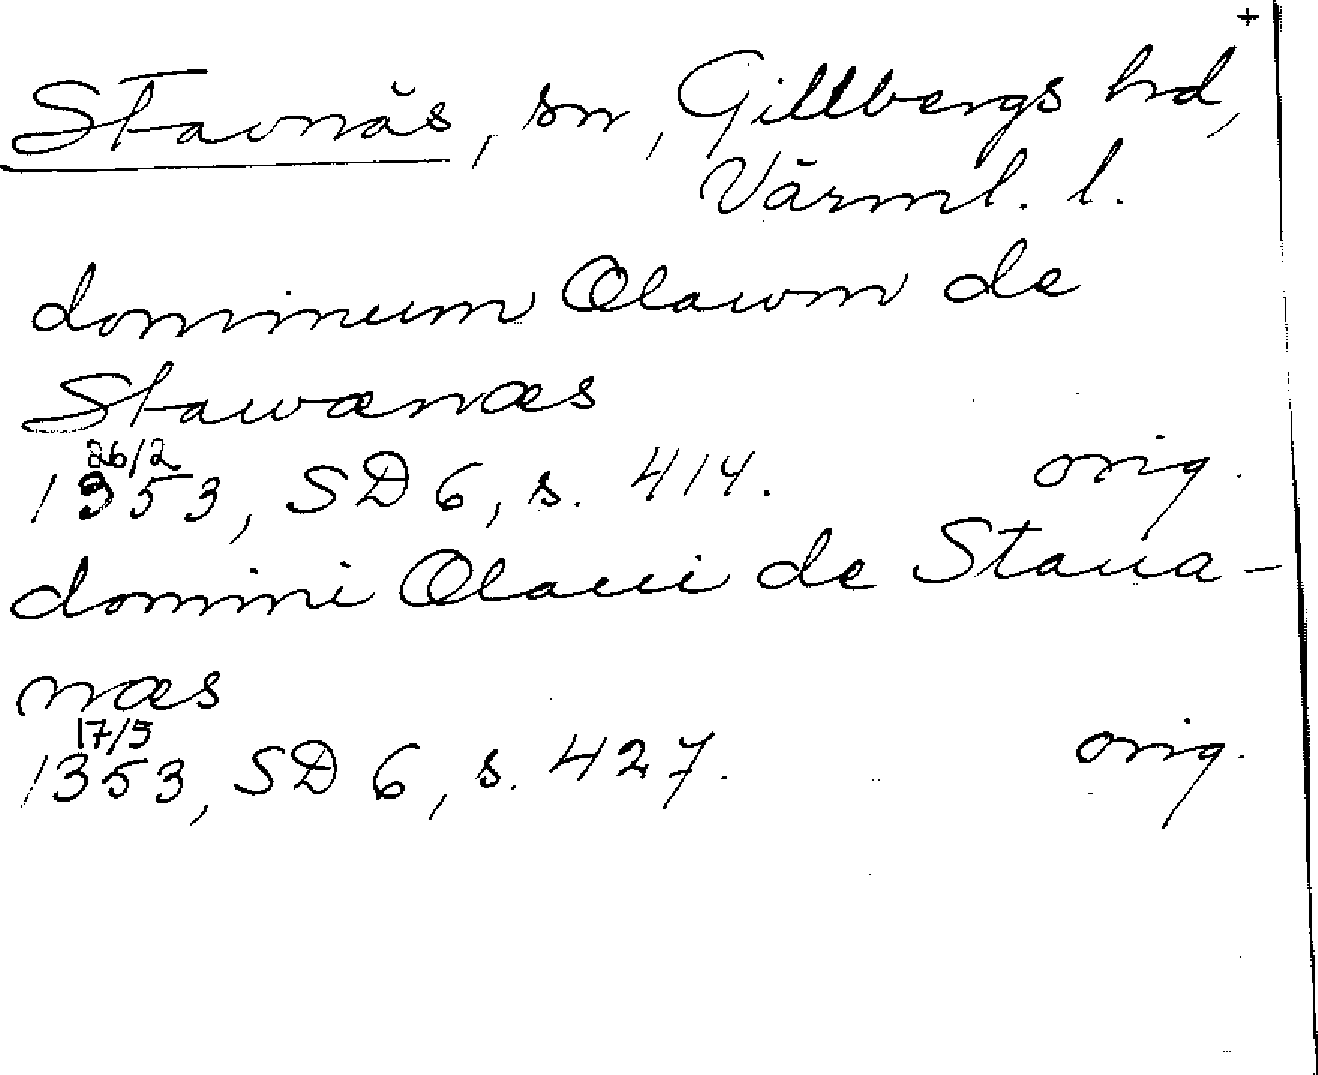 +
Stavnäs, sn, Gillbergs hd,
Värml. l.
dominum Olawm de
Stawanæs
26/2
1353, SD 6, s. 414. orig.
domini Olaui de Staua-
næs
17/5
1353, SD 6, s. 427. orig.